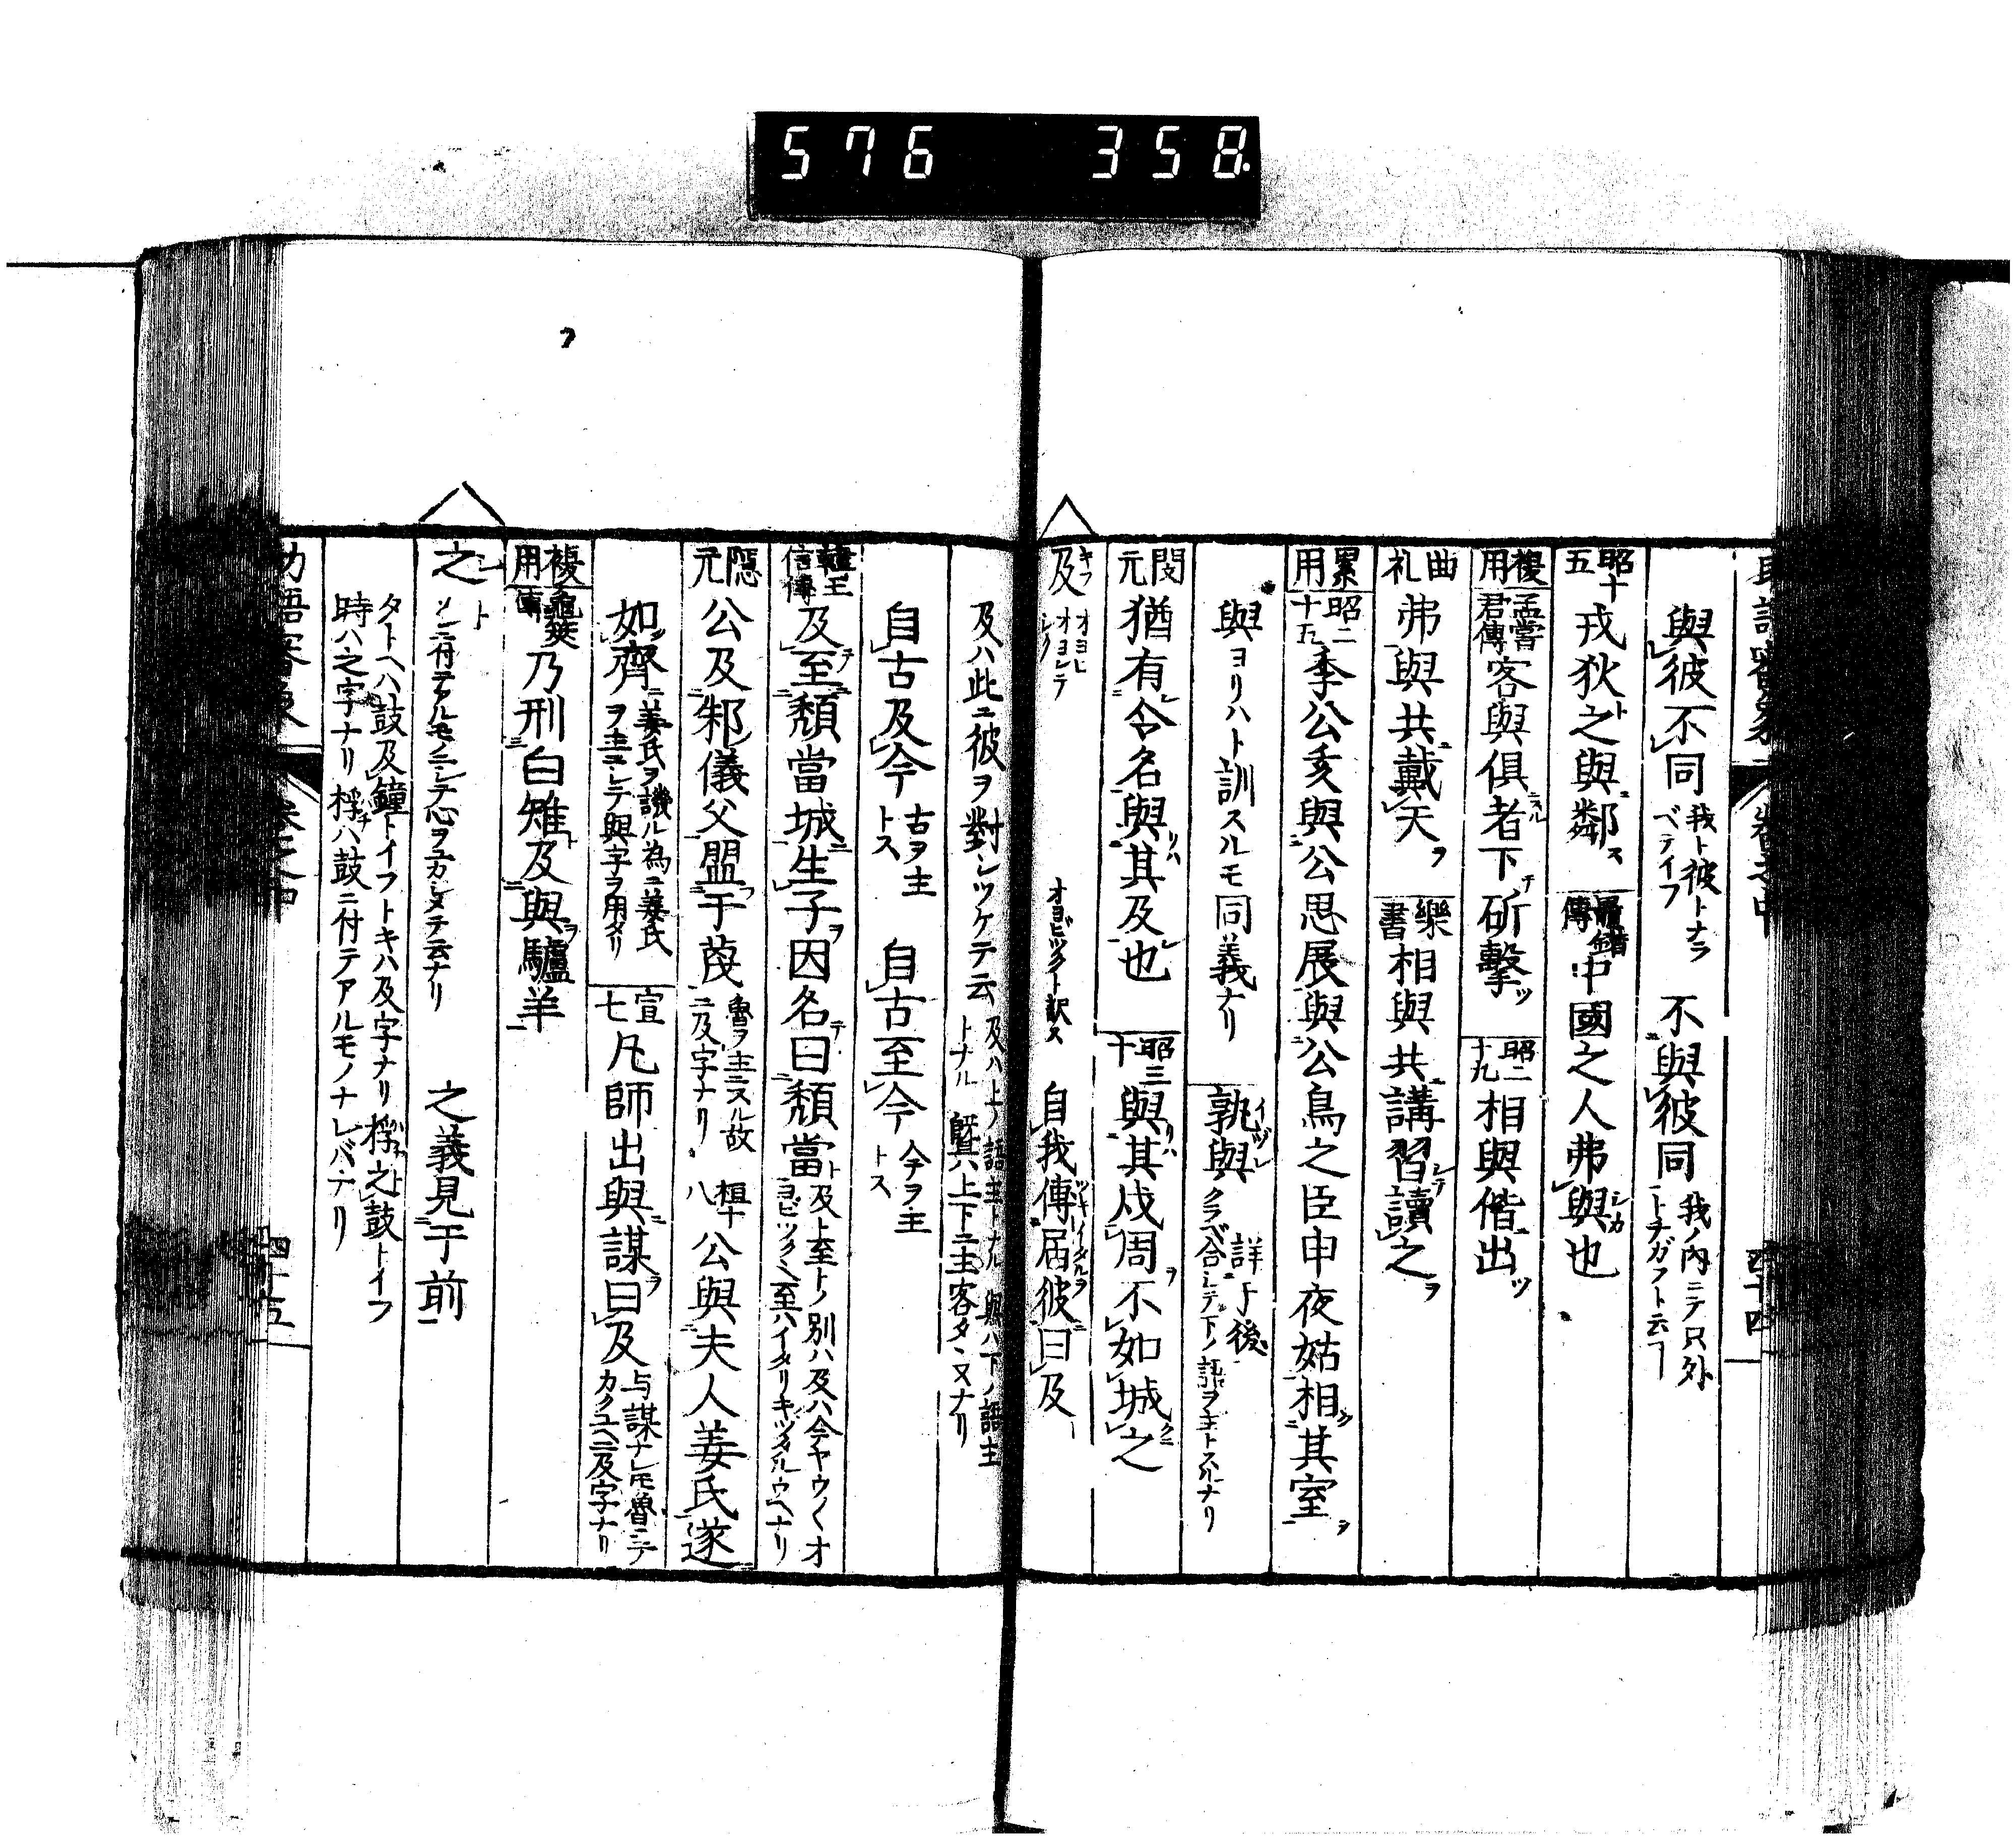 576 358
與彼不同 我ト彼トナラベテイフ 不與彼同 我ノ内ニテ只外トチガフト云フ
昭十五 戎狄之與鄰 鼂錯傳 中國之人弗與也
複用 孟嘗君傳 客與俱者下斫擊 昭二十九 相與偕出
曲礼 弗與共戴天 樂書 相與共講習讀之
累用 昭二十五 季公亥與公思展與公鳥之臣申夜姑相其室
與ヨリハト訓スルモ同義ナリ 孰與 詳于後 クラベ合シテ下ノ語ヲ主トスルナリ
閔元 猶有令名與其及也 昭三十 與其戍周不如城之
及 キフ オヨビ オヨンデ オヨビツクト訳ス 自我傳届彼曰及
及ハ此ニ彼ヲ對シツケテ云 及ハ上ノ語主トナル 與ハ下ノ語主トナル 曁ハ上下ニ主客タヽヌナリ
自古及今 古ヲ主トス 自古至今 今ヲ主トス
韓王信傳 及至頹當城生子因名曰頹當 及ト至トノ別ハ及ハ今ヤウ〱オヨビツク至ハイタリキツタルウヘナリ
隱元 公及邾儀父盟于蔑 魯ヲ主ニスル故ニ及字ナリ 桓十八 公與夫人姜氏遂
如齊 姜氏ヲ譏ル為ニ姜氏ヲ主ニシテ與字ヲ用タリ 宣七 凡師出與謀曰及 与謀ナレモ魯ニテカクユヘニ及字ナリ
複用 龜筴傳 乃刑白雉及與驪羊
之 ト ソレニ付テアルモノニシテ心ヲユカシメテ云ナリ 之義見于前
タトヘハ鼓及鐘トイフトキハ及字ナリ 桴之鼓トイフ
時ハ之字ナリ 桴ハ鼓ニ付テアルモノナレバナリ
四十五